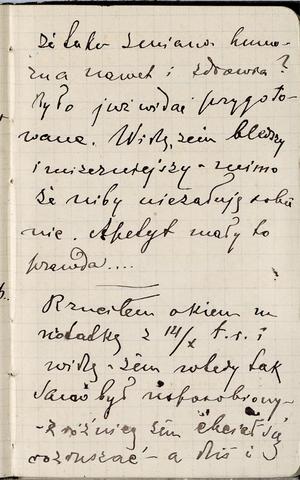 że taka zmiana humo-
rna nawet i zdrowia?
Było już widać przygoto-
wane. Widzę, żem bledszy
i mizerniejszy - mimo
że niby nie żałuję sobie
nic. Apetyt mały to
prawda....
Rzuciłem okiem na
notatkę z 14/X t.r. i
widzę - żem wtedy tak
samo był usposobiony -
- z różnicą żem chciał się
rozruszać - a dziś i